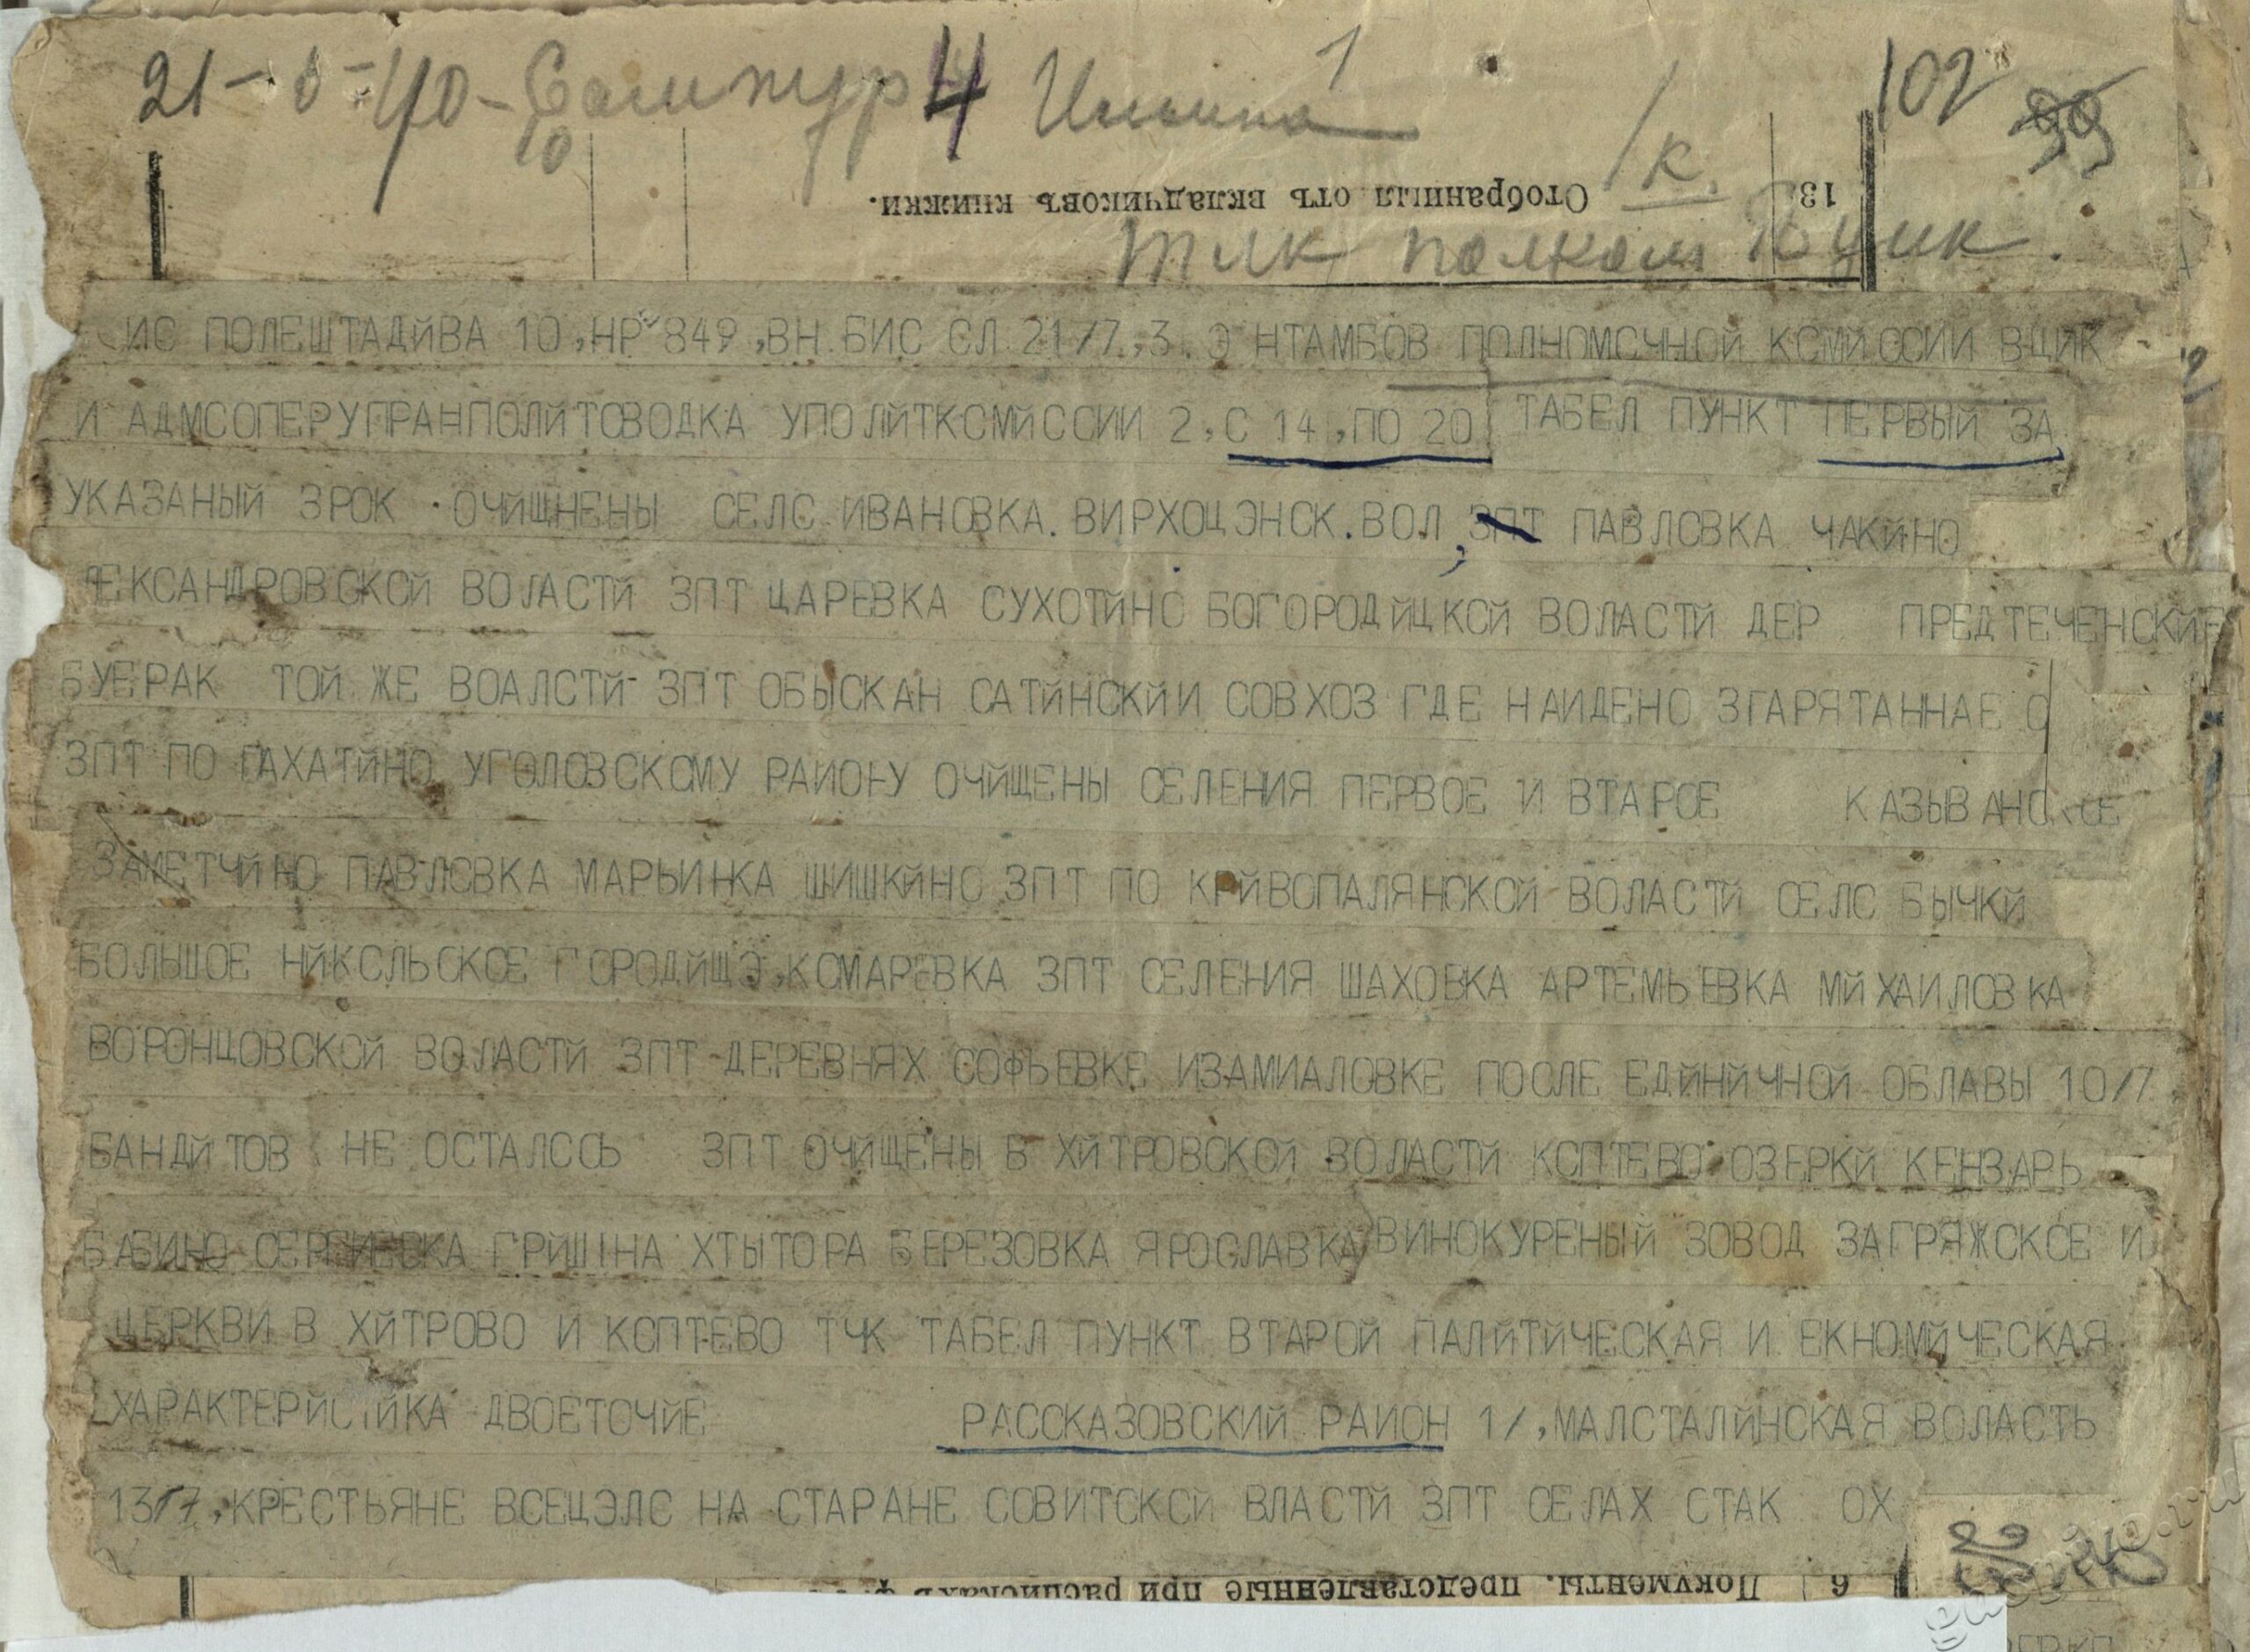 21 - 6 - 40 - Сампур 4 Ильина 1
10
102
99
/к.
13
Отобранныя отъ вкладчиковъ книжки.
тлк полком Вцик.
ИС ПОЛЕШТАДЙВА 10,НР 849,ВН.БИС СЛ 21/7,3. Э НТАМБОВ ПОЛНОМОЧНОЙ КОМЙССИИ ВЦЙК
И АДМСОПЕРУПРАНПОЛЙТОВОДКА УПОЛЙТКОМЙССИИ 2,С 14,ПО 20 ТАБЕЛ ПУНКТ ПЕРВЫЙ ЗА
УКАЗАНЫЙ ЗРОК ОЧЙЩНЕНЫ СЕЛО ИВАНОВКА.ВИРХОЦЭНСК.ВОЛ, ЗПТ ПАВЛОВКА ЧАКЙНО
ЛЕКСАНДРОВСКОЙ ВОЛАСТЙ ЗПТ ЦАРЕВКА СУХОТЙНО БОГОРОДЙЦКОЙ ВОЛАСТЙ ДЕР ПРЕДТЕЧЕНСКЙЕ
БУЕРАК ТОЙ ЖЕ ВОАЛСТЙ ЗПТ ОБЫСКАН САТЙНСКЙИ СОВХОЗ ГДЕ НАИДЕНО ЗГАРЯТАННАЕ О
ЗПТ ПО ПАХАТЙНО УГОЛОВСКОМУ РАИОНУ ОЧЙЩЕНЫ СЕЛЕНИЯ ПЕРВОЕ И ВТАРОЕ КАЗЫВАНСКОЕ
ЗАМЕТЧЙНО ПАВЛОВКА МАРЬИНКА ШИШКЙНО ЗПТ ПО КРЙВОПАЛЯНСКОЙ ВОЛАСТЙ СЕЛО БЫЧКЙ
БОЛЬШОЕ НЙКОЛЬСКОЕ ГОРОДЙЩЭ,КОМАРЕВКА ЗПТ СЕЛЕНИЯ ШАХОВКА АРТЕМЬЕВКА МЙХАИЛОВКА
ВОРОНЦОВСКОЙ ВОЛАСТЙ ЗПТ ДЕРЕВНЯХ СОФЬЕВКЕ ИЗАМИАЛОВКЕ ПОСЛЕ ЕДЙНЙЧНОЙ ОБЛАВЫ 10/7
БАНДЙТОВ НЕ ОСТАЛОСЬ ЗПТ ОЧЙЩЕНЫ В ХЙТРОВСКОЙ ВОЛАСТЙ КОПТЕВО ОЗЕРКЙ КЕНЗАРЬ
БАБИНО СЕРГИЕВКА ГРЙШІНА ХТЫТОРА БЕРЕЗОВКА ЯРОСЛАВКА ВИНОКУРЕНЫЙ ЗОВОД ЗАГРЯЖСКОЕ И
ЦЕРКВИ В ХЙТРОВО И КОПТЕВО ТЧК ТАБЕЛ ПУНКТ ВТАРОЙ ПАЛЙТЙЧЕСКАЯ И ЕКНОМЙЧЕСКАЯ
ХАРАКТЕРЙСТЙКА ДВОЕТОЧЙЕ РАССКАЗОВСКИЙ РАИОН 1/,МАЛСТАЛЙНСКАЯ ВОЛАСТЬ
13/7,КРЕСТЬЯНЕ ВСЕЦЭЛО НА СТАРАНЕ СОВИТСКОЙ ВЛАСТЙ ЗПТ СЕЛАХ СТАК ОХ
6 Документы, представленные при распискахъ ф